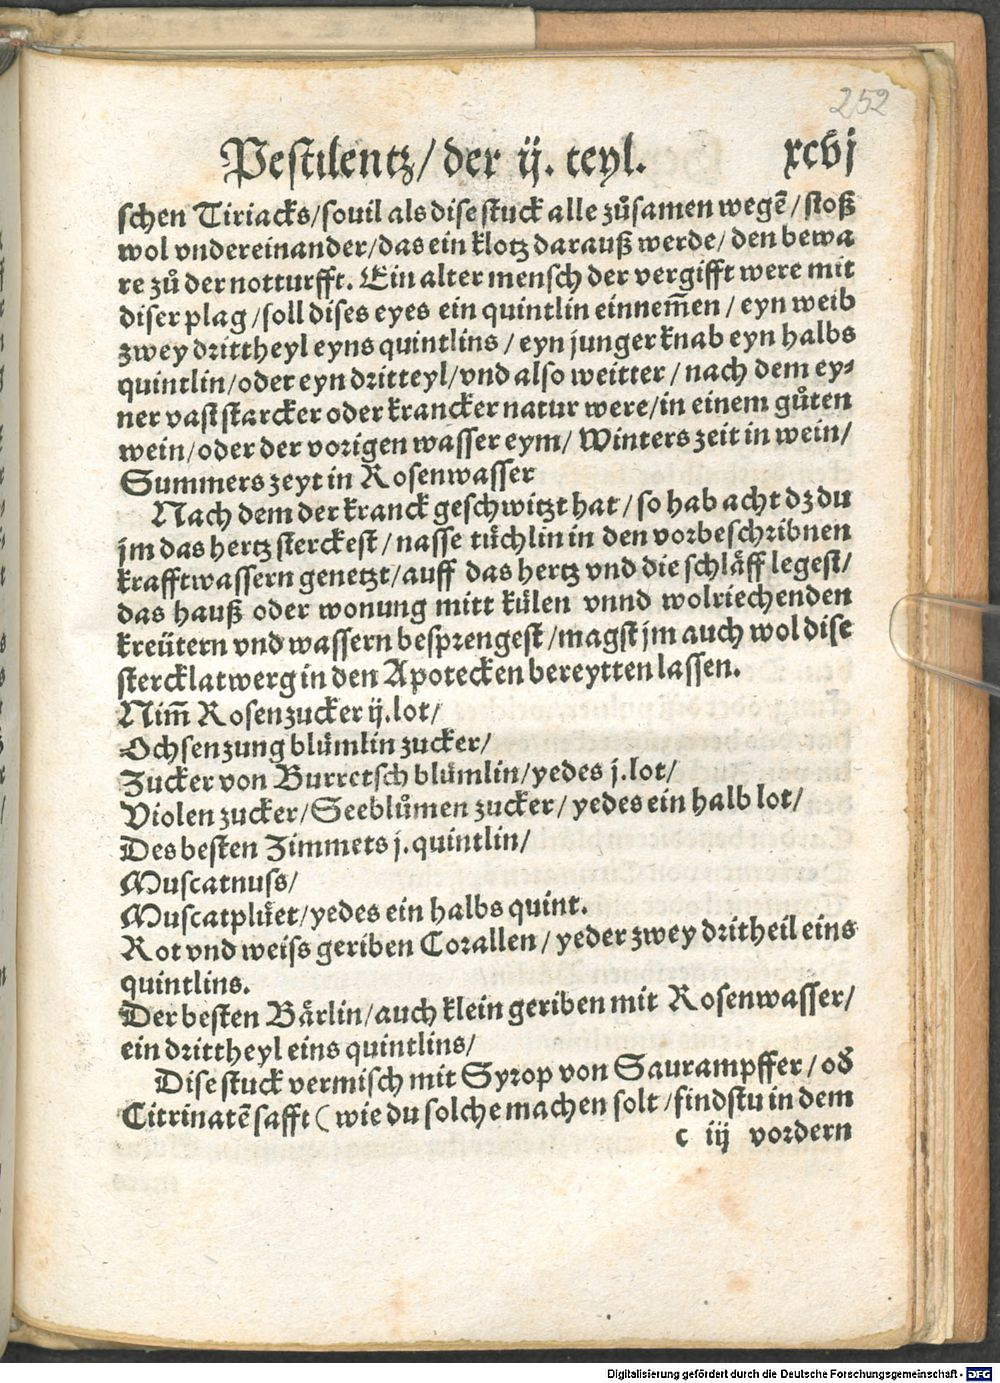 252
Pestilentz/ der ij. teyl. xcvj
schen Tiriacks/souil als dise stuck alle zůsamen wegē/ stoß
wol vndereinander/das ein klotz darauß werde/ den bewa
re zů der notturfft. Ein alter mensch der vergifft were mit
diser plag/soll dises eyes ein quintlin einnem̄en/ eyn weib
zwey drittheyl eyns quintlins/ eyn junger knab eyn halbs
quintlin/oder eyn dritteyl/vnd also weitter/ nach dem ey⸗
ner vast starcker oder krancker natur were/in einem gůten
wein/oder der vorigen wasser eym/ Winters zeit in wein/
Summers zeyt in Rosenwasser
Nach dem der kranck geschwitzt hat/ so hab acht dz du
jm das hertz sterckest/ nasse tuͤchlin in den vorbeschribnen
krafftwassern genetzt/auff das hertz vnd die schlaͤff legest/
das hauß oder wonung mitt kuͤlen vnnd wolriechenden
kreütern vnd wassern besprengest/magst jm auch wol dise
stercklatwerg in den Apotecken bereytten lassen.
Nim̄ Rosenzucker ij.lot/
Ochsenzung bluͤmlin zucker/
Zucker von Burretsch bluͤmlin/yedes j.lot/
Violen zucker/Seeblůmen zucker/ yedes ein halb lot/
Des besten Zimmets j.quintlin/
Muscatnuss/
Muscatpluͤet/yedes ein halbs quint.
Rot vnd weiss geriben Corallen/ yeder zwey dritheil eins
quintlins.
Der besten Baͤrlin/auch klein geriben mit Rosenwasser/
ein drittheyl eins quintlins/
Dise stuck vermisch mit Syrop von Saurampffer/ od̄
Citrinatē safft (wie du solche machen solt/findstu in dem
c iij vordern
Digitalisierung gefördert durch die Deutsche Forschungsgemeinschaft - DFG